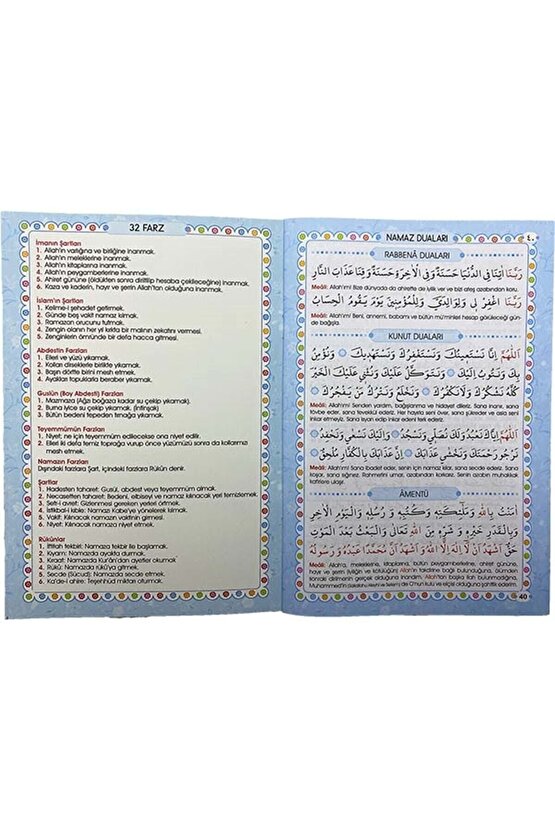 32 FARZ
İmanın Şartları
1. Allah'ın varlığına ve birliğine inanmak.
2. Allah'ın meleklerine inanmak.
3. Allah'ın kitaplarına inanmak.
4. Allah'ın peygamberlerine inanmak.
5. Ahiret gününe (öldükten sonra diriltilip hesaba çekileceğine) inanmak.
6. Kaza ve kaderin, hayır ve şerrin Allah'tan olduğuna inanmak.
İslam'ın Şartları
1. Kelime-i şehadet getirmek.
2. Günde beş vakit namaz kılmak.
3. Ramazan orucunu tutmak.
4. Zengin olanın her yıl kırkta bir malının zekatını vermesi.
5. Zenginlerin ömründe bir defa hacca gitmesi.
Abdestin Farzları
1. Elleri ve yüzü yıkamak.
2. Kolları dirseklerle birlikte yıkamak.
3. Başın dörtte birini mesh etmek.
4. Ayakları topuklarla beraber yıkamak.
Guslün (Boy Abdesti) Farzları
1. Mazmaza (Ağzı boğaza kadar su çekip yıkamak).
2. Burna iyice su çekip yıkamak. (İntinşak)
3. Bütün bedeni tepeden tırnağa yıkamak.
Teyemmümün Farzları
1. Niyet; ne için teyemmüm edilecekse ona niyet edilir.
2. Elleri iki defa temiz toprağa vurup önce yüzümüzü sonra da kollarımızı
mesh etmek.
Namazın Farzları
Dışındaki farzlara Şart, içindeki farzlara Rükûn denir.
Şartlar
1. Hadesten taharet: Gusül, abdest veya teyemmüm almak.
2. Necasetten taharet: Bedeni, elbiseyi ve namaz kılınacak yeri temizlemek.
3. Setr-i avret: Gizlenmesi gereken yerleri örtmek.
4. İstikbal-i kıble: Namazı Kabe'ye yönelerek kılmak.
5. Vakit: Kılınacak namazın vaktinin girmesi.
6. Niyet: Kılınacak namaza niyet etmek.
Rükûnlar
1. İftitah tekbiri: Namaza tekbir ile başlamak.
2. Kıyam: Namazda ayakta durmak.
3. Kıraat: Namazda Kur'ân'dan ayetler okumak
4. Rükû: Namazda rükû'ya gitmek.
5. Secde (Sücud): Namazda secde etmek.
6. Ka'de-i ahire: Teşehhüd miktarı oturmak.
NAMAZ DUALARI
٤٠
RABBENÂ DUALARI
رَبَّنَا اٰتِنَا فِي الدُّنْيَا حَسَنَةً وَفِي الْاٰخِرَةِ حَسَنَةً وَقِنَا عَذَابَ النَّارِ
Meâli: Allah'ım! Bize dünyada da ahirette de iyilik ver ve bizi ateş azabından koru.
رَبَّنَا اغْفِرْ لِي وَلِوَالِدَيَّ وَلِلْمُؤْمِنِينَ يَوْمَ يَقُومُ الْحِسَابُ
Meâli: Allah'ım! Beni, annemi, babamı ve bütün mü'minleri hesap görüleceği gün
de bağışla.
KUNUT DUALARI
اَللّٰهُمَّ اِنَّا نَسْتَعِينُكَ وَنَسْتَغْفِرُكَ وَنَسْتَهْدِيكَ وَنُؤْمِنُ
بِكَ وَنَتُوبُ اِلَيْكَ وَنَتَوَكَّلُ عَلَيْكَ وَنُثْنِي عَلَيْكَ الْخَيْرَ
كُلَّهُ نَشْكُرُكَ وَلَا نَكْفُرُكَ وَنَخْلَعُ وَنَتْرُكُ مَنْ يَفْجُرُكَ
Meâli: Allah'ım! Senden yardım, bağışlanma ve hidayet dileriz. Sana inanır, sana
tövbe eder, sana tevekkül ederiz. Her hayırla seni över, sana şükreder ve asla seni
inkar etmeyiz. Sana isyan edip inkar edeni terk ederiz.
اَللّٰهُمَّ اِيَّاكَ نَعْبُدُ وَلَكَ نُصَلِّي وَنَسْجُدُ وَاِلَيْكَ نَسْعٰى وَنَحْفِدُ
نَرْجُو رَحْمَتَكَ وَنَخْشٰى عَذَابَكَ اِنَّ عَذَابَكَ بِالْكُفَّارِ مُلْحِقٌ
Meâli: Allah'ım! Sana ibadet eder, senin için namaz kılar, sana secde ederiz. Sana
koşar, sana sığınırız. Rahmetini umar, azabından korkarız. Senin azabın muhakkak
kafirlere ulaşır.
ÂMENTÜ
اٰمَنْتُ بِاللّٰهِ وَمَلٰئِكَتِهِ وَكُتُبِهِ وَ رُسُلِهِ وَالْيَوْمِ الْاٰخِرِ
وَبِالْقَدَرِ خَيْرِهِ وَ شَرِّهِ مِنَ اللّٰهِ تَعَالٰى وَالْبَعْثُ بَعْدَ الْمَوْتِ
حَقٌّ اَشْهَدُ اَنْ لَا اِلٰهَ اِلَّا اللّٰهُ وَاَشْهَدُ اَنَّ مُحَمَّدًا عَبْدُهُ وَ رَسُولُهُ
Meâli: Allah'a, meleklerine, kitaplarına, bütün peygamberlerine, ahiret gününe,
hayır ve şerrin (iyiliğin ve kötülüğün) Allah'ın takdirine bağlı bulunduğuna, ölümden
sonraki dirilmenin gerçek olduğuna inandım. Allah'tan başka ilah bulunmadığına,
Muhammed'in (Sallallahu Aleyhi ve Sellem) de O'nun kulu ve elçisi olduğuna şahitlik ederim.
40